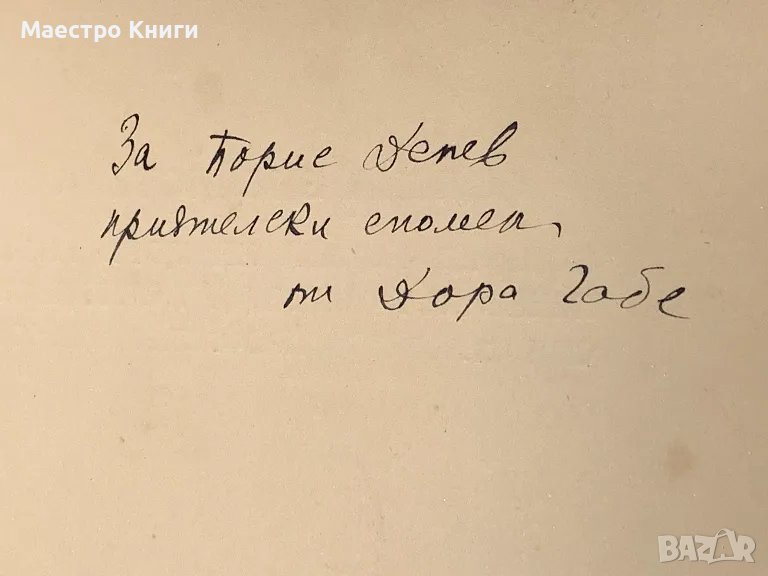 Маестро Книги
За Борис Делчев
приятелски спомен,
от Дора Габе
BAZAR